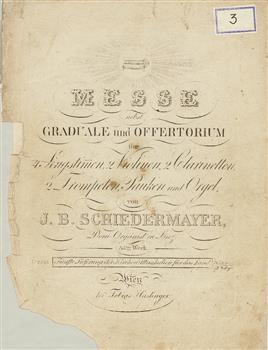 3
MESSE
nebst
GRADUALE und OFFERTORIUM
für
4 Singstimen, 2 Violinen, 2 Clarinetten
2 Trompeten, Pauken und Orgel,
von
J. B. SCHIEDERMAYER,
Dom-Organist in Linz
Werk
Wien
bei Tobias Haslinger